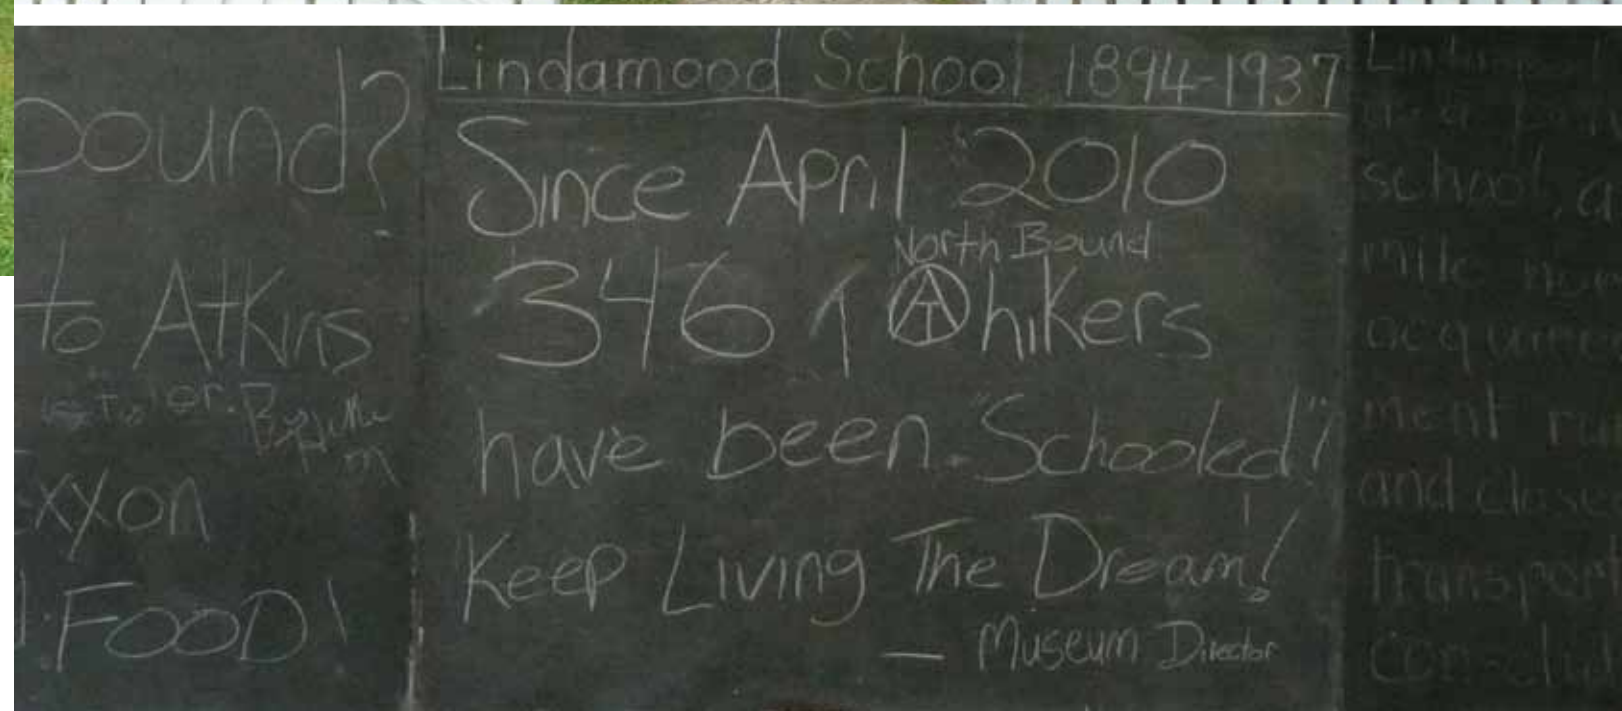 bound?
to Atkins
or
xxon
FOOD!
Lindamood School 1894-1937
Since April 2010
North Bound
346 1 AT hikers
have been "Schooled"!
Keep Living The Dream!
— Museum Director
school, a
mile
ment
and close
transport